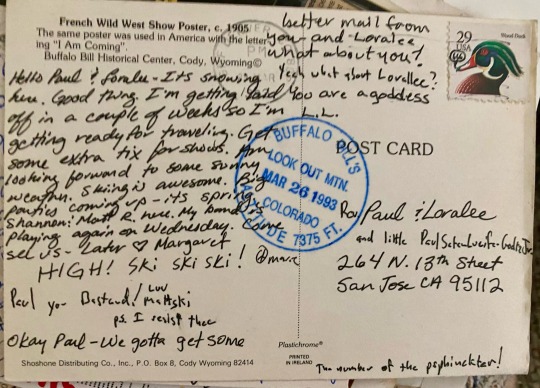 French Wild West Show Poster, c. 1905
The same poster was used in America with the letter-
ing "I Am Coming".
Buffalo Bill Historical Center, Cody, Wyoming©
Hello Paul & Loralee - Its snowing
here. Good thing. I'm getting laid
off in a couple of weeks so I'm
getting ready for traveling. Get
some extra tix for shows. Am
looking forward to some sunny
weather. Skiing is awesome. Big
parties coming up - its spring.
Shannon & Matt R. here. My band is
playing again on Wednesday. Come
see us - Later ♡ Margaret
HIGH! Ski Ski Ski!
Paul you Bastard! Luv
Mattski
ps. I resist thee
Okay Paul - We gotta get some
better mail from
you - and Loralee
what about you?
Yeah what about Lovallee?
You are a goddess
L.L.
29
USA
Wood Duck
BUFFALO BILL'S
LOOK OUT MTN.
MAR 26 1993
COLORADO
ALTITUDE 7375 FT.
POST CARD
Paul & Loralee
and little Paul
264 N. 13th Street
San Jose CA 95112
The number of the psphinckter!
Plastichrome®
PRINTED
IN IRELAND
Shoshone Distributing Co., Inc., P.O. Box 8, Cody Wyoming 82414